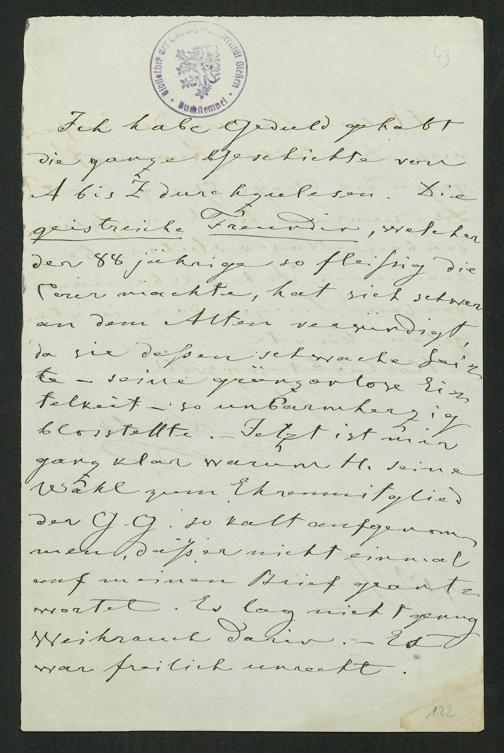 Bibliothek der Landes-Universität Gießen
Buchstempel
43
Ich habe Geduld gehabt
die ganze Geschichte von
A bis Z durchzulesen. Die
geistreiche Freundin, welcher
der 88 jährige so fleißig die
Cour machte, hat sich schwer
an dem Alten versündigt,
da sie deßen schwache Sei-
te – seine gränzenlose Ei-
telkeit – so unbarmherzig
blosstellte. – Jetzt ist mir
ganz klar warum H. seine
Wahl zum Ehrenmitglied
der G. G. so kalt aufgenom-
men, daß er nicht einmal
auf meinen Brief geant-
wortet. Es lag nicht genug
Weihrauch darin. – Es
war freilich unrecht.
122